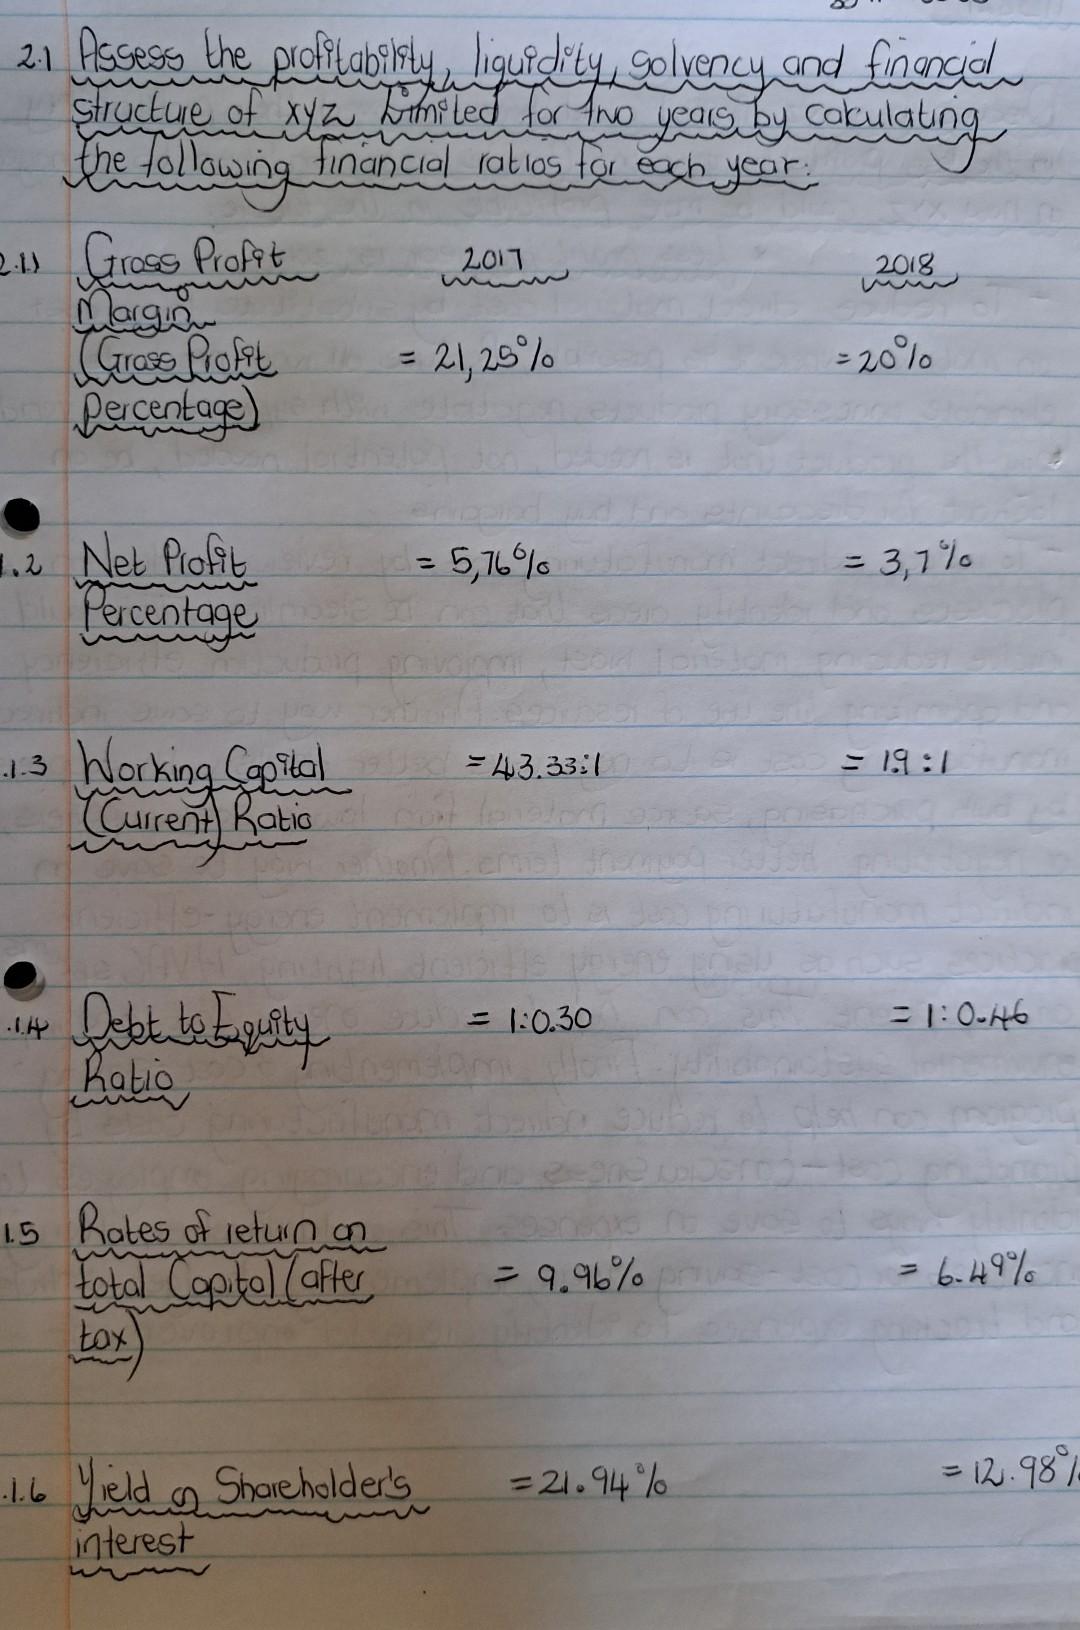 2.1 Assess the profitability, liquidity, solvency and financial
structure of xyz Limited for two years by calculating
the following financial ratios for each year:
2.1.1 Gross Profit 2017 2018
Margin
(Gross Profit = 21,25% = 20%
Percentage)
1.2 Net Profit = 5,76% = 3,7%
Percentage
.1.3 Working Capital = 43.33:1 = 1.9:1
(Current) Ratio
.1.4 Debt to Equity = 1:0.30 = 1:0.46
Ratio
1.5 Rates of return on
total Capital (after = 9.96% = 6.49%
tax)
.1.6 Yield on Shareholder's = 21.94% = 12.98%
interest